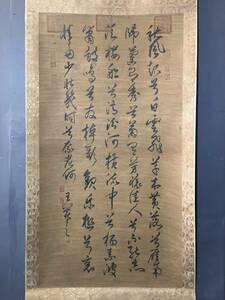 秋風起兮白雲飛草木黃落兮雁南
歸蘭有秀兮菊有芳懷佳人兮不能忘
泛樓船兮濟汾河橫中流兮揚素波
簫鼓鳴兮發棹歌歡樂極兮哀
情多少壯幾時兮奈老何